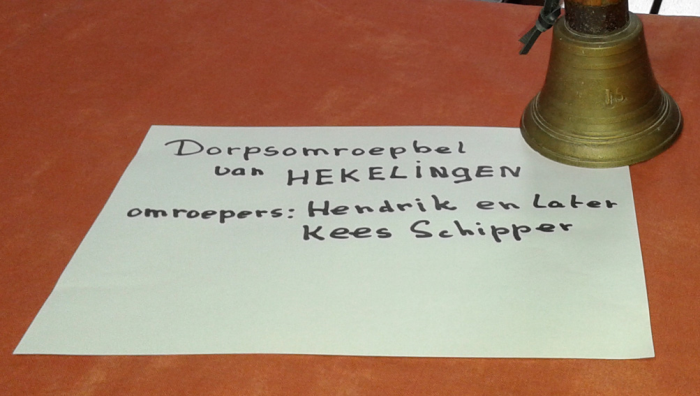 Dorpsomroepbel
van HEKELINGEN
omroepers: Hendrik en Later
Kees Schipper